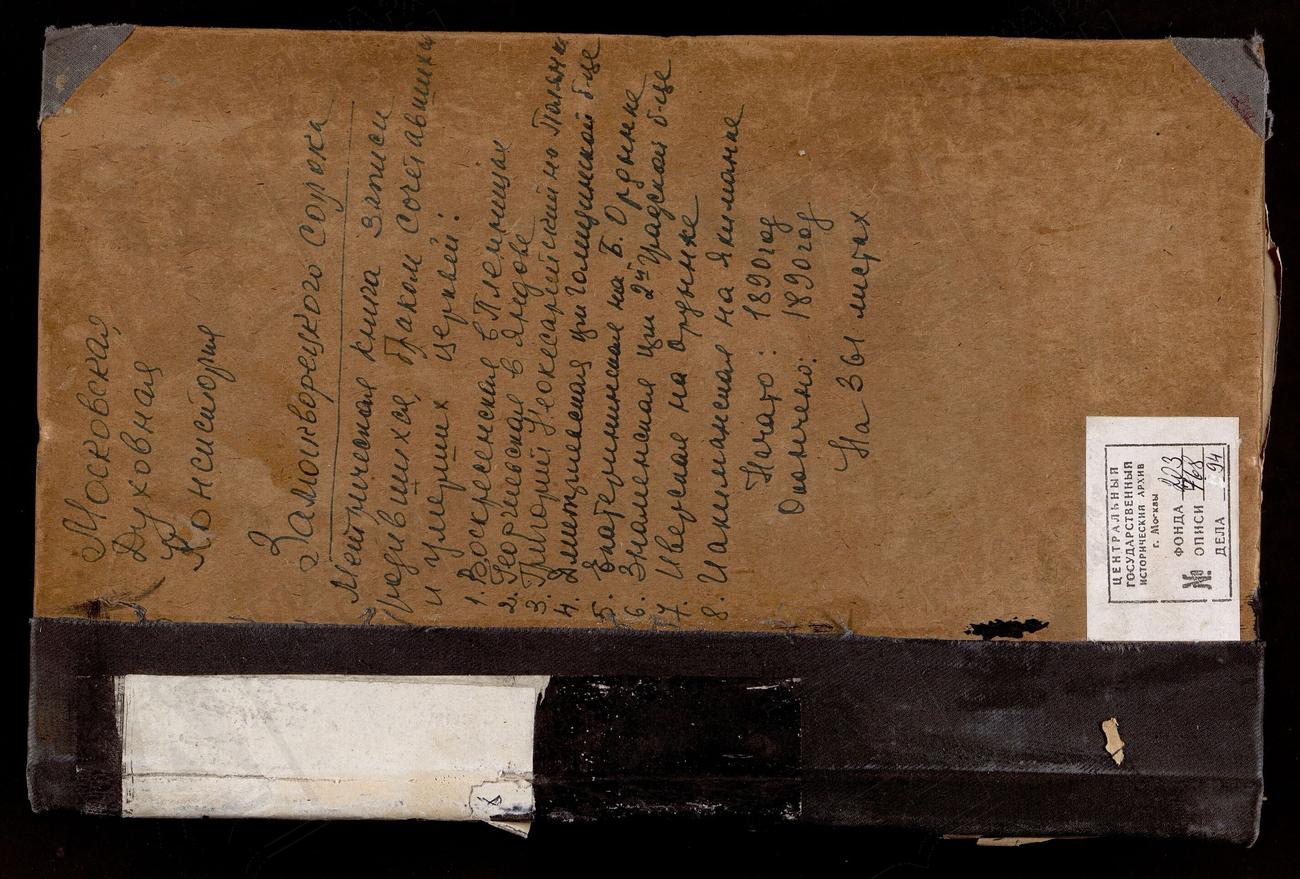 Московская
Духовная
Консистория
Замоскворецкого сорока
Метрическая книга записи
родившихся, браком сочетавшихся
и умерших церквей:
1. Воскресенская в Пленницах
2. Георгиевская в Яндове
3. Григорий Неокесарийский на Полянке
4. Дмитриевская при Голицинской б-це
5. Екатерининская на Б. Ордынке
6. Знаменская при 2й градской б-це
7. Иверская на Ордынке
8. Иакиманская на Якиманке
Начато: 1890 год
Окончено: 1890 год
На 361 листах
ЦЕНТРАЛЬНЫЙ
ГОСУДАРСТВЕННЫЙ
ИСТОРИЧЕСКИЙ АРХИВ
г. Москвы
ФОНДА
№ ОПИСИ
ДЕЛА 94